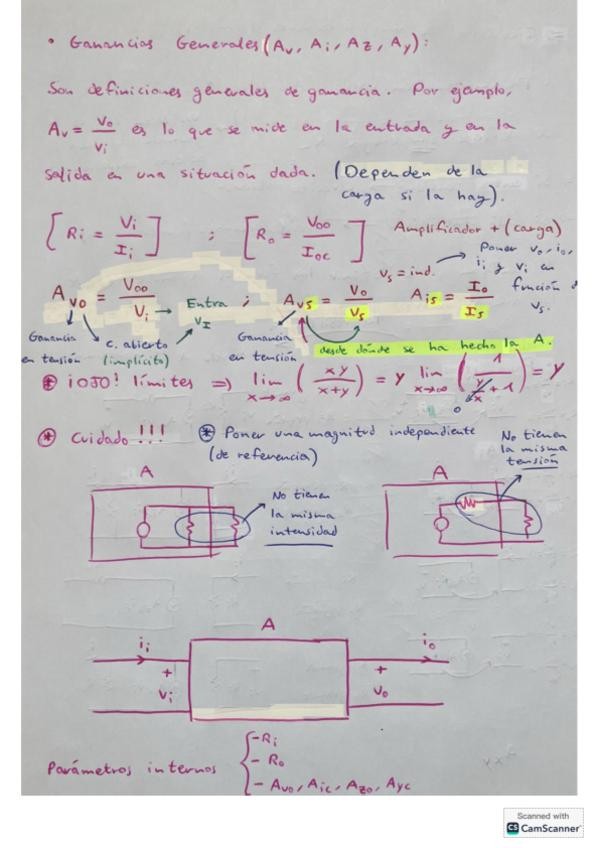 • Ganancias Generales (Av, Ai, Az, Ay):
Son definiciones generales de ganancia. Por ejemplo,
Av = Vo/Vi es lo que se mide en la entrada y en la
salida en una situación dada. (Dependen de la
carga si la hay).
[Ri = Vi/Ii] ; [Ro = Voo/Ioc] Amplificador + (carga)
Vs = ind. → Poner vo, io,
ii y vi en
función d
vs.
Avo = Voo/Vi → Entra ; Avs = Vo/Vs Ais = Io/Is
VI
Ganancia
en tensión
c. abierto
(implícito)
Ganancia
en tensión
desde dónde se ha hecho la A.
⊛ ¡OJO! límites ⇒ lim x→∞ (xy/(x+y)) = y lim x→∞ (1/(y/x + 1)) = y
0
⊛ Cuidado!!! ⊛ Poner una magnitud independiente
(de referencia)
No tienen
la misma
tensión
A
No tienen
la misma
intensidad
A
A
ii
+
Vi
io
+
Vo
Parámetros internos
- Ri
- Ro
- Avo, Aic, Azo, Ayc
Scanned with
CS CamScanner